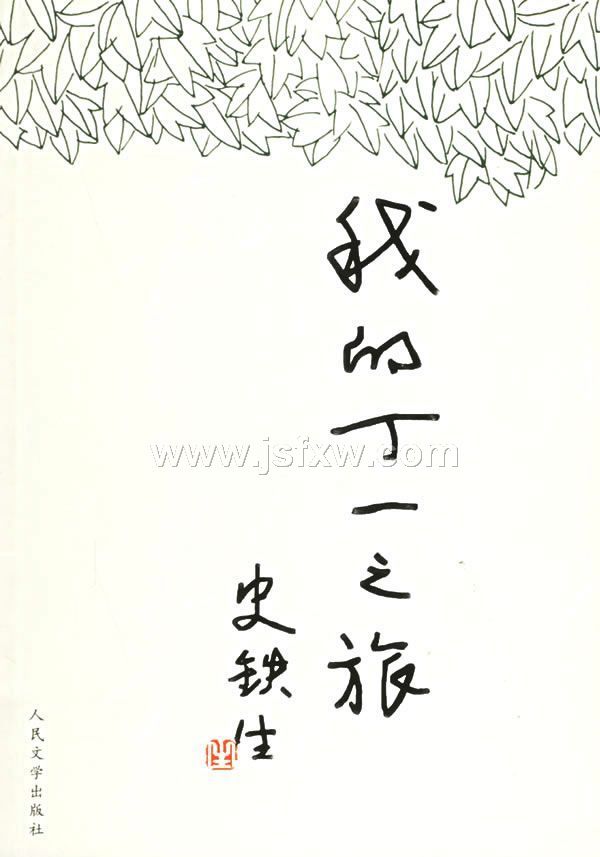 我的丁一之旅
史铁生
生
人民文学出版社
www.jsfxw.com